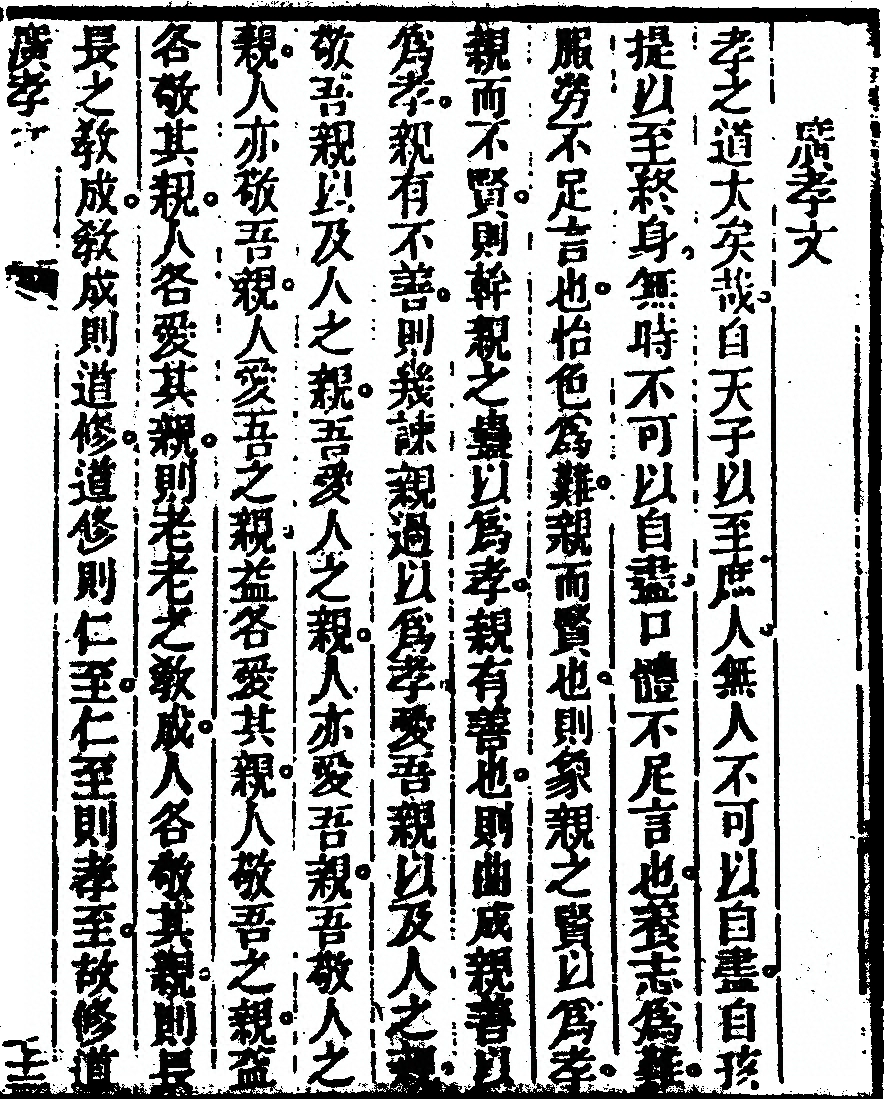 廣孝文
孝之道大矣哉自天子以至庶人無人不可以自盡自孩
提以至終身無時不可以自盡口體不足言也養志爲難
服勞不足言也怡色爲難親而賢也則象親之賢以爲孝
親而不賢則幹親之蠱以爲孝親有善也則曲成親善以
爲孝親有不善則幾諫親過以爲孝愛吾親以及人之親
敬吾親以及人之親吾愛人之親人亦愛吾親吾敬人之
親人亦敬吾親人愛吾之親益各愛其親人敬吾之親益
各敬其親人各愛其親則老老之教成人各敬其親則長
長之教成教成則道修道修則仁至仁至則孝至故修道
廣孝